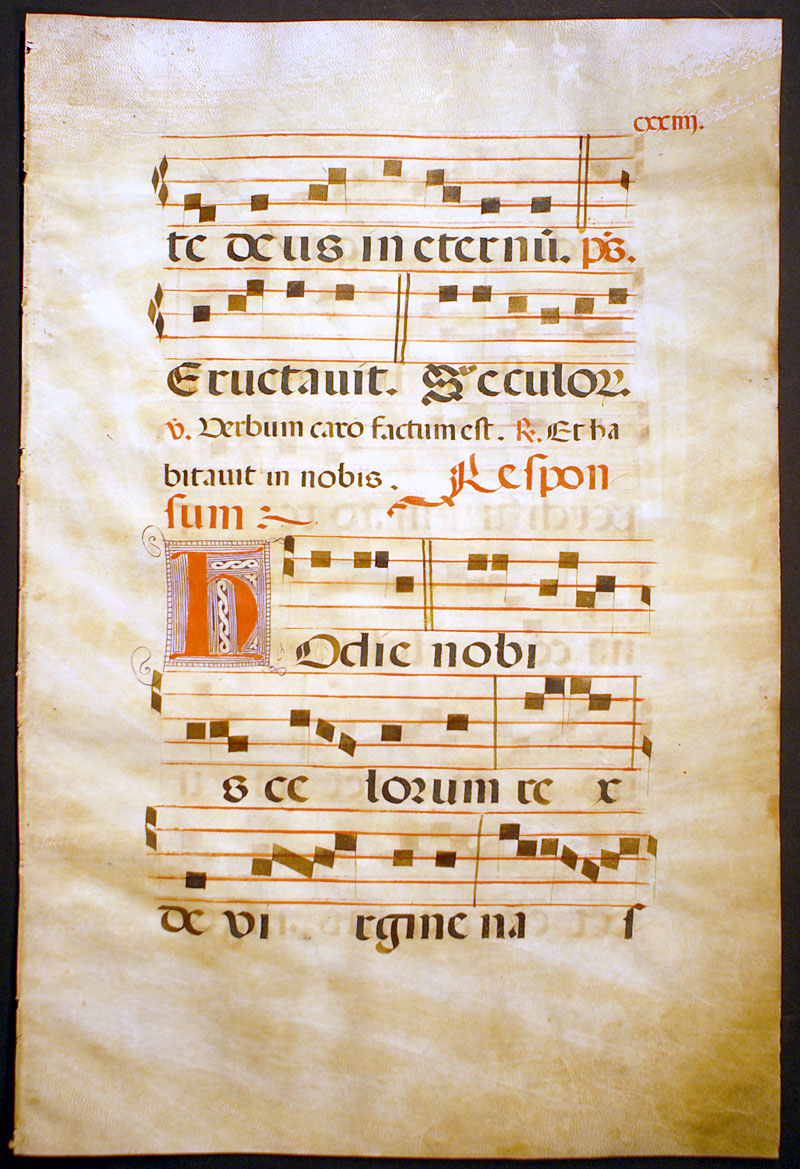 cxxiiij.
te deus in eternū. ps.
Eructauit. Seculoꝝ.
v. Verbum caro factum est. R. Et ha
bitauit in nobis. Respon
sum
hOdie nobi
s ce lorum re x
de vi rgine na s